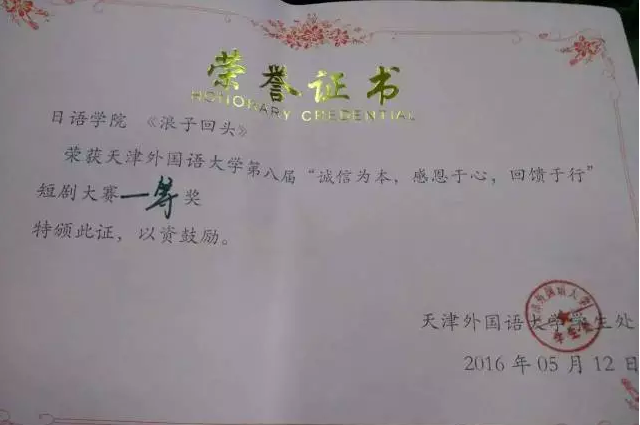 荣誉证书
HONORARY CREDENTIAL
日语学院 《浪子回头》
荣获天津外国语大学第八届“诚信为本，感恩于心，回馈于行”
短剧大赛一等奖
特颁此证，以资鼓励。
天津外国语大学学生处
2016 年 05 月 12 日